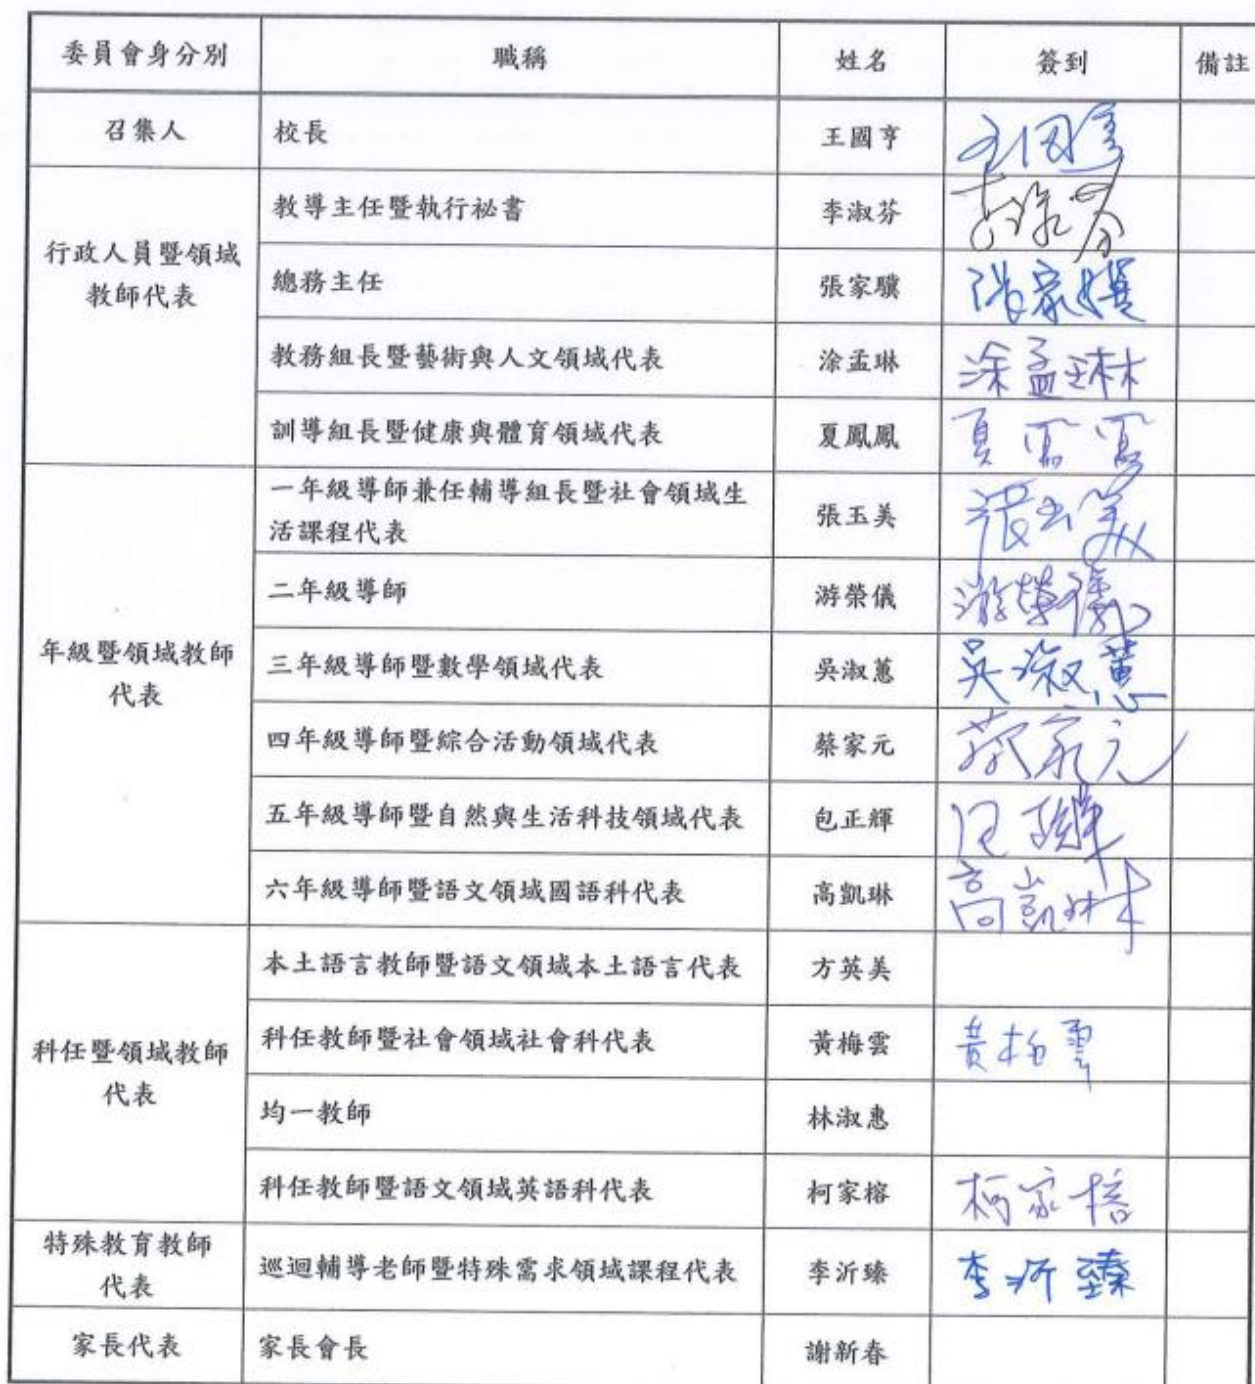 委員會身分別 職稱 姓名 簽到 備註
召集人 校長 王國亨 王國亨
行政人員暨領域
教師代表
教導主任暨執行祕書 李淑芬 李淑芬
總務主任 張家驥 張家驥
教務組長暨藝術與人文領域代表 涂孟琳 涂孟琳
訓導組長暨健康與體育領域代表 夏鳳鳳 夏鳳鳳
年級暨領域教師
代表
一年級導師兼任輔導組長暨社會領域生
活課程代表 張玉美 張玉美
二年級導師 游榮儀 游榮儀
三年級導師暨數學領域代表 吳淑蕙 吳淑蕙
四年級導師暨綜合活動領域代表 蔡家元 蔡家元
五年級導師暨自然與生活科技領域代表 包正輝 包正輝
六年級導師暨語文領域國語科代表 高凱琳 高凱琳
科任暨領域教師
代表
本土語言教師暨語文領域本土語言代表 方英美
科任教師暨社會領域社會科代表 黃梅雲 黃梅雲
均一教師 林淑惠
科任教師暨語文領域英語科代表 柯家榕 柯家榕
特殊教育教師
代表
巡迴輔導老師暨特殊需求領域課程代表 李沂臻 李沂臻
家長代表 家長會長 謝新春